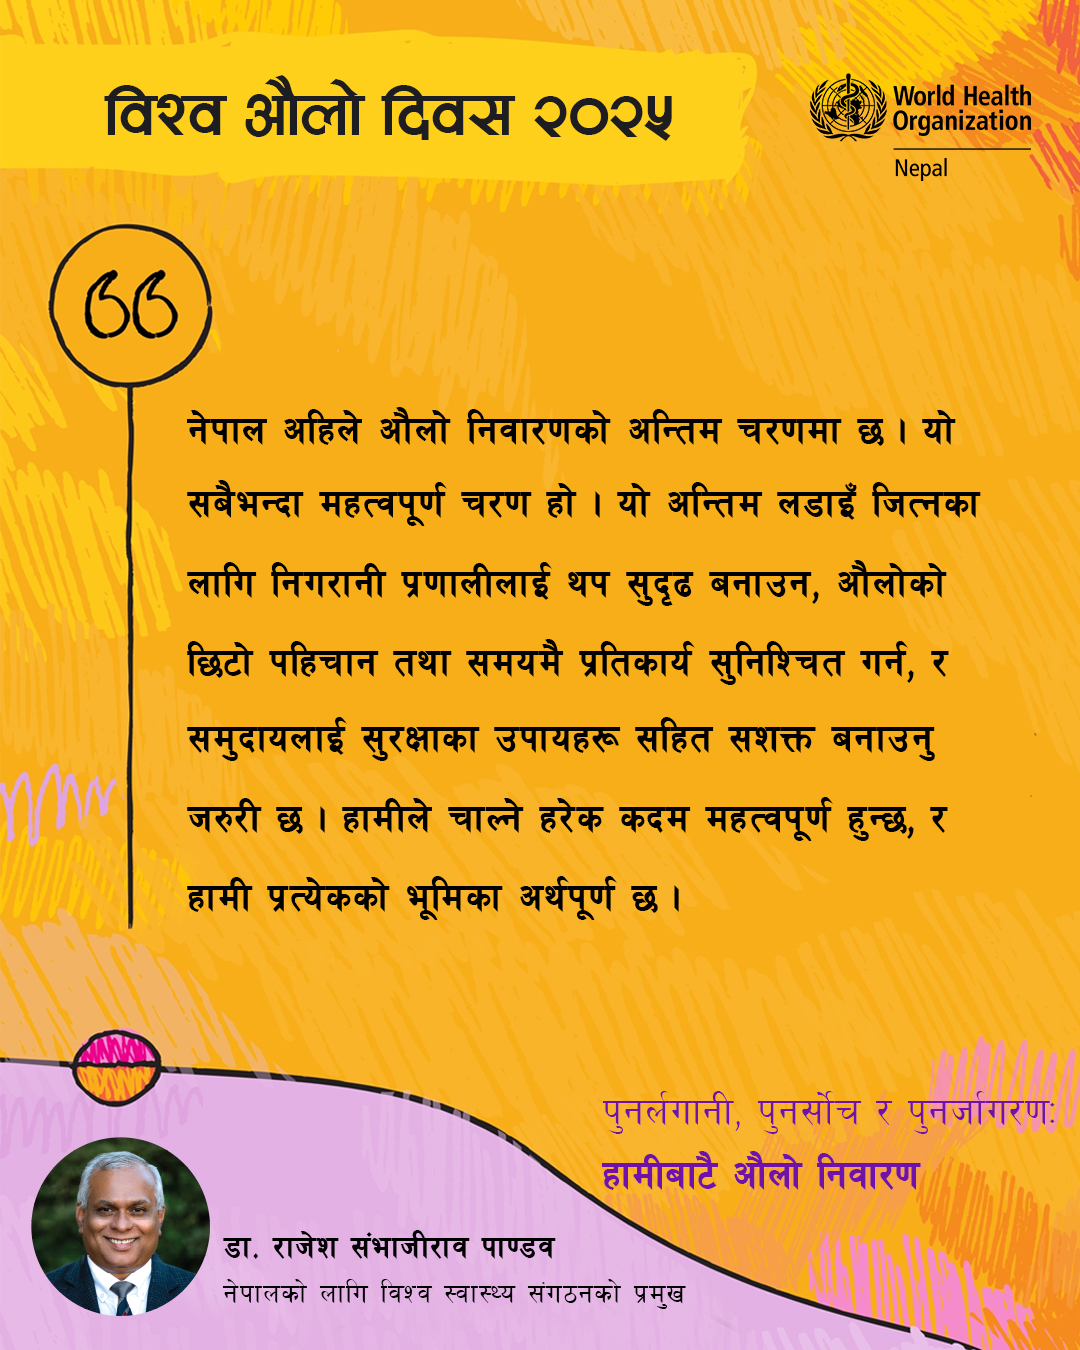 विश्व औलो दिवस २०२५
World Health
Organization
Nepal
नेपाल अहिले औलो निवारणको अन्तिम चरणमा छ । यो
सबैभन्दा महत्वपूर्ण चरण हो । यो अन्तिम लडाइँ जित्नका
लागि निगरानी प्रणालीलाई थप सुदृढ बनाउन, औलोको
छिटो पहिचान तथा समयमै प्रतिकार्य सुनिश्चित गर्न, र
समुदायलाई सुरक्षाका उपायहरू सहित सशक्त बनाउनु
जरुरी छ । हामीले चाल्ने हरेक कदम महत्वपूर्ण हुन्छ, र
हामी प्रत्येकको भूमिका अर्थपूर्ण छ ।
पुनर्लगानी, पुनर्सोच र पुनर्जागरणः
हामीबाटै औलो निवारण
डा. राजेश संभाजीराव पाण्डव
नेपालको लागि विश्व स्वास्थ्य संगठनको प्रमुख